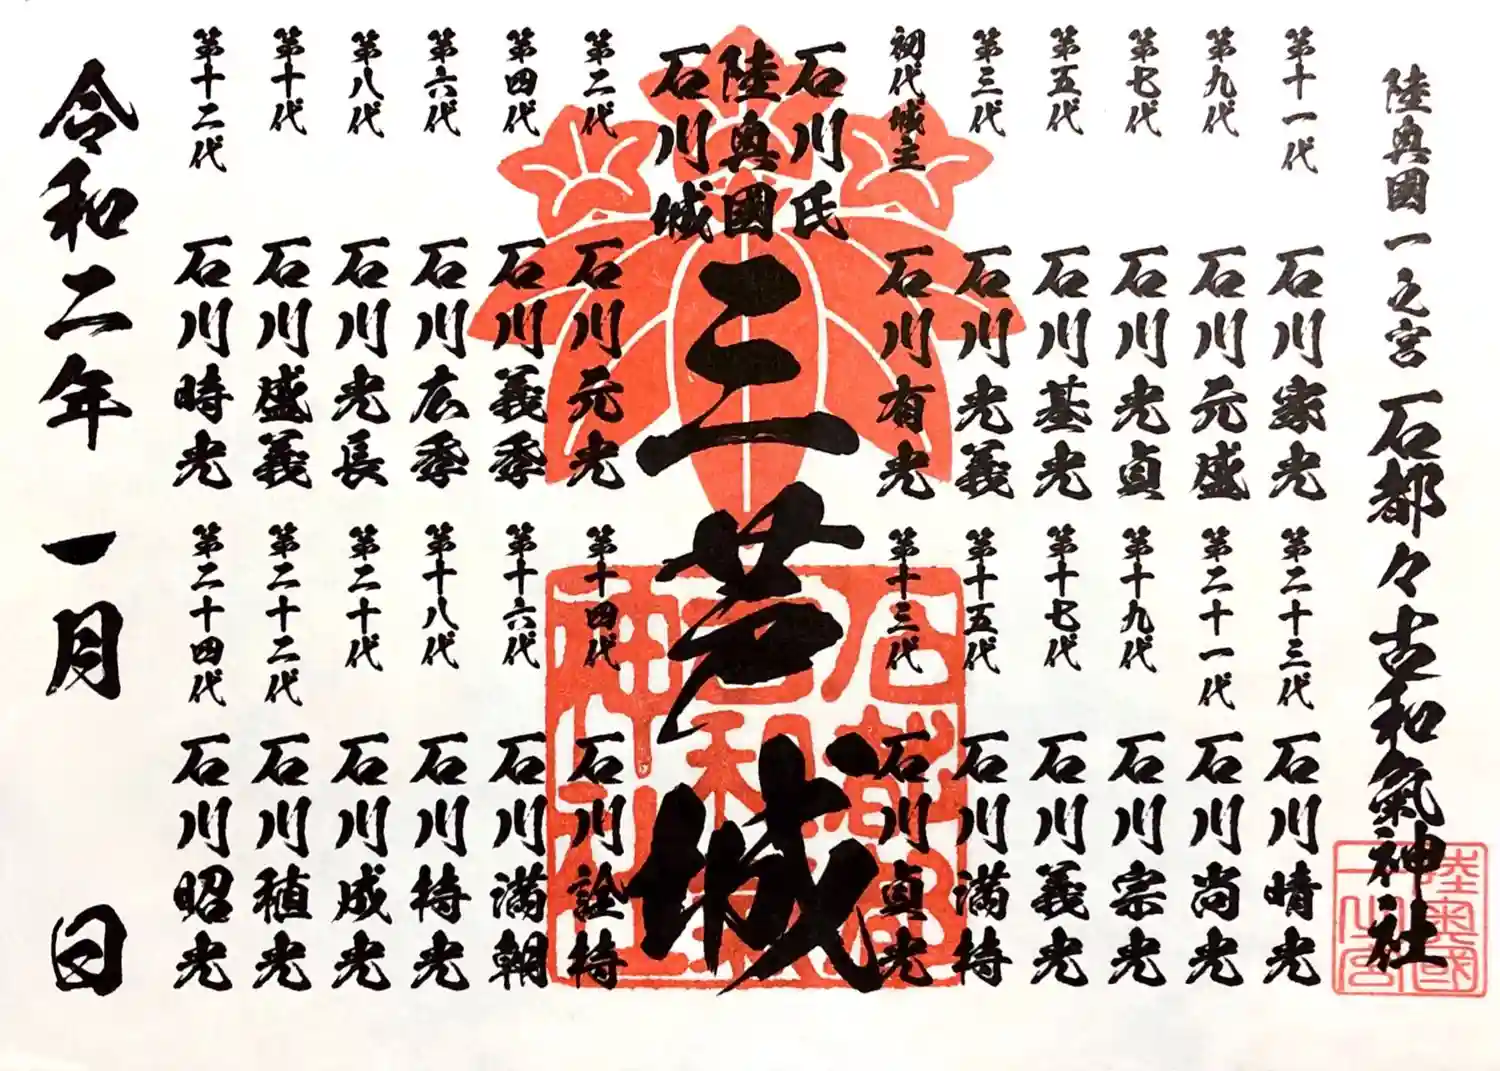 陸奥國一之宮 石都々古和氣神社
陸奥國一之宮
第十一代 石川家光
第九代 石川元盛
第七代 石川光貞
第五代 石川基光
第三代 石川光義
初代城主 石川有光
石川氏
陸奥國
石川城
三芦城
第二代 石川元光
第四代 石川義季
第六代 石川広季
第八代 石川光長
第十代 石川盛義
第十二代 石川時光
第二十三代 石川晴光
第二十一代 石川尚光
第十九代 石川宗光
第十七代 石川義光
第十五代 石川満持
第十三代 石川貞光
第十四代 石川詮持
第十六代 石川満朝
第十八代 石川持光
第二十代 石川成光
第二十二代 石川稙光
第二十四代 石川昭光
令和二年 一月 日